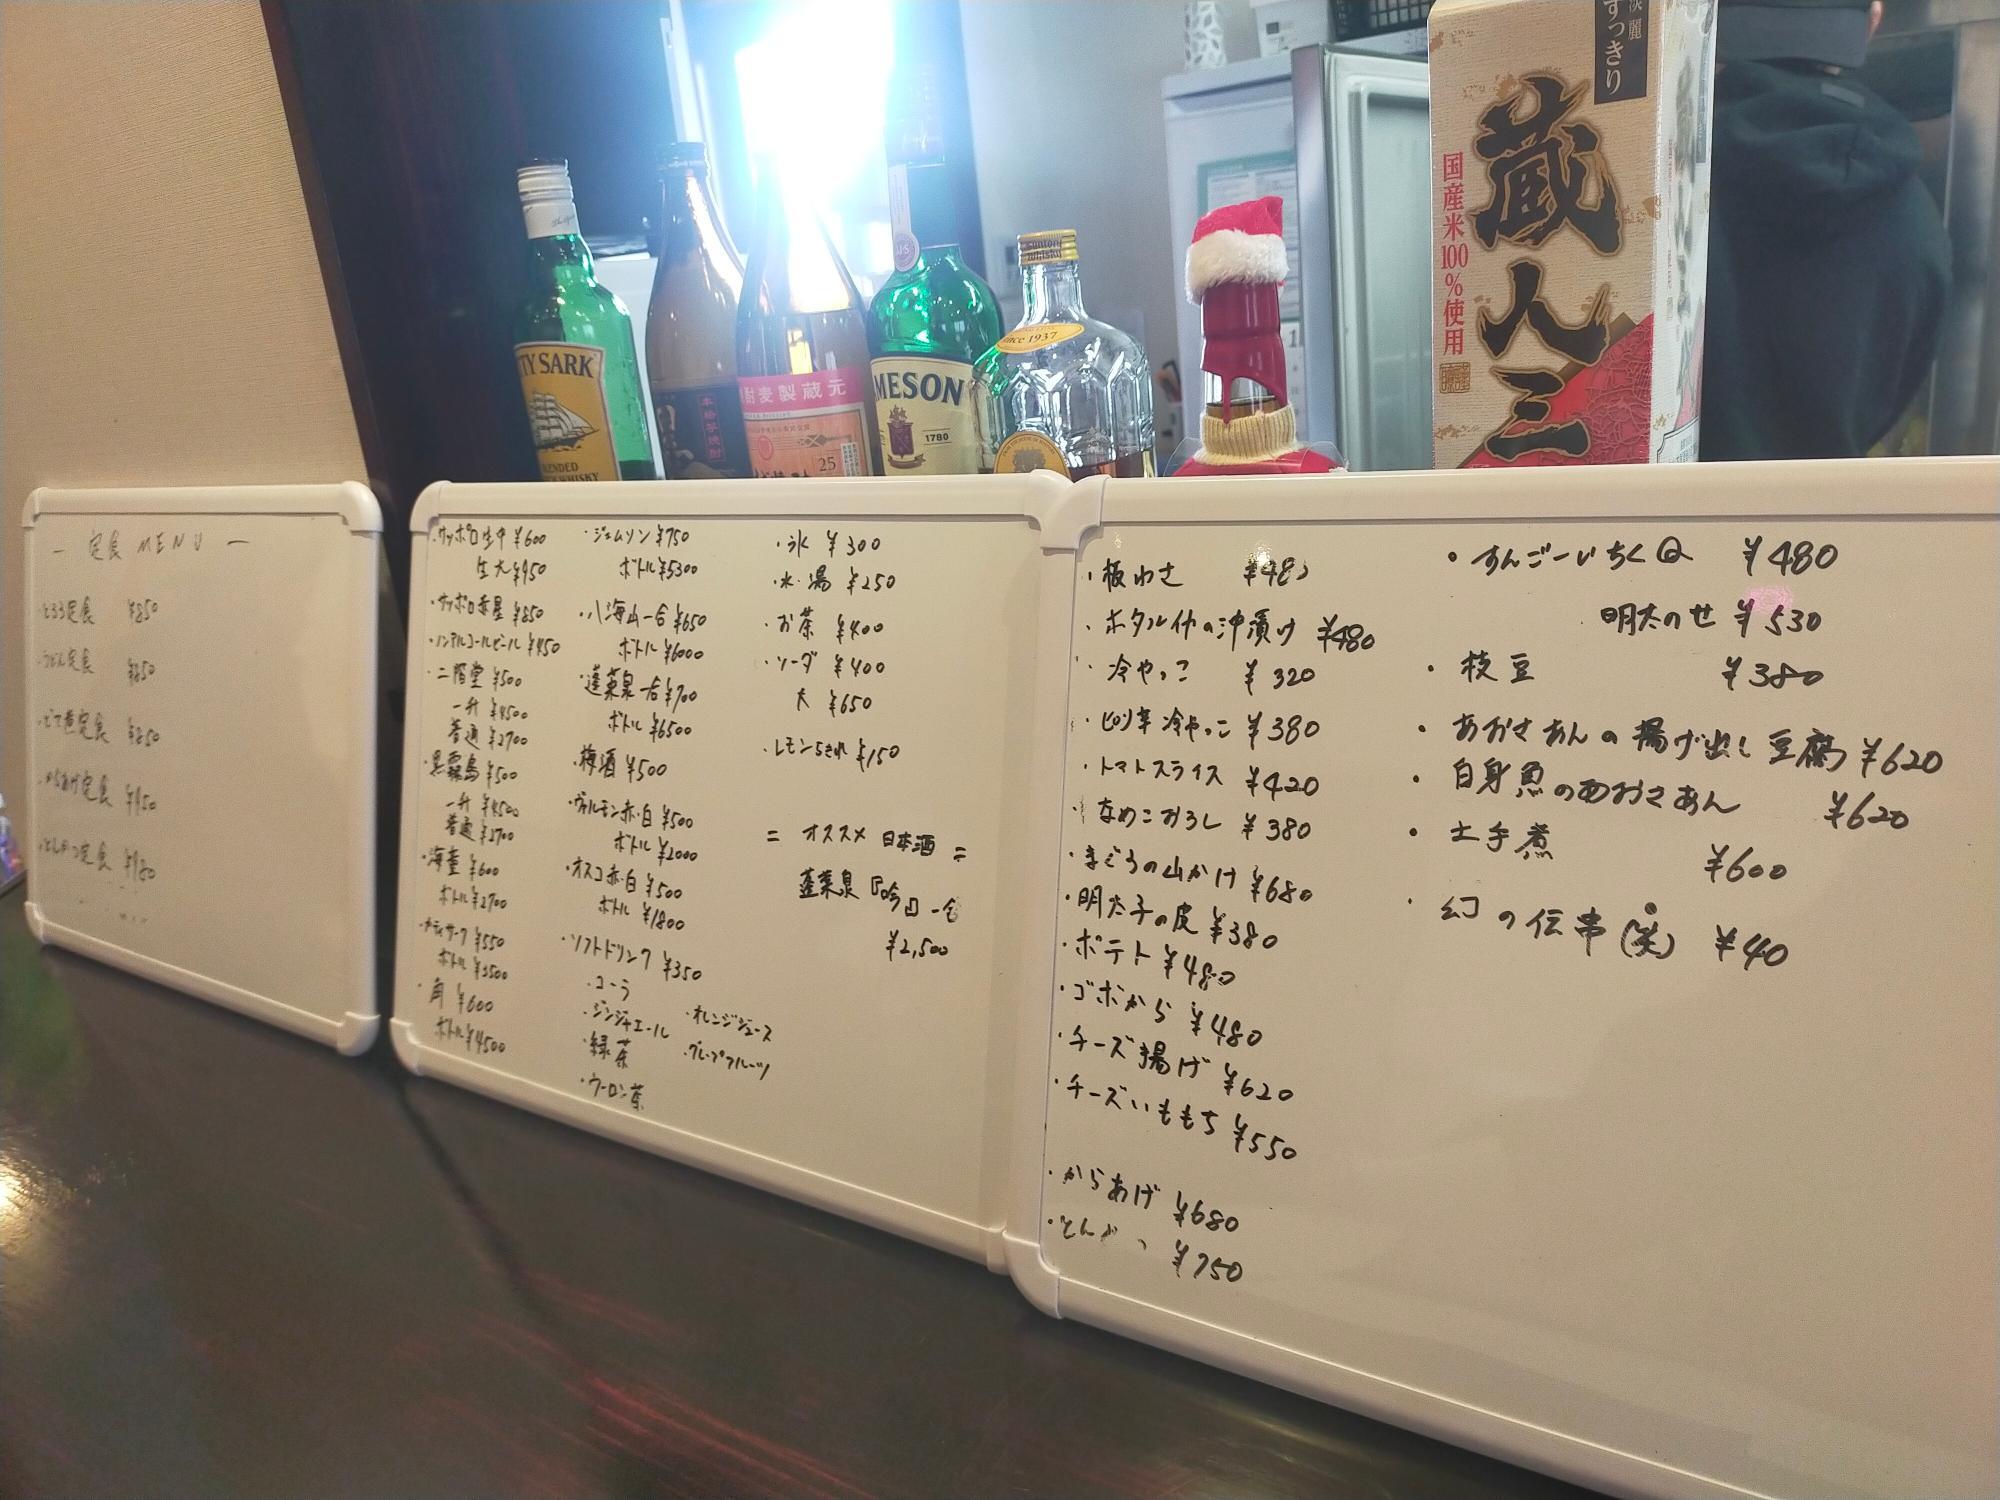 淡麗
すっきり
蔵人三
国産米100%使用
TY SARK
BLENDED
WHISKY
本格芋焼酎
酎麦製蔵元
25
MESON
1780
Suntory
Whisky
Since 1937
ー 定食 MENU ー
・とろろ定食 ¥850
・うどん定食 ¥850
・どて煮定食 ¥850
・からあげ定食 ¥950
・とんかつ定食 ¥980
・サッポロ生中 ¥600
生大 ¥950
・サッポロ赤星 ¥850
・ノンアルコールビール ¥450
・二階堂 ¥500
一升 ¥4500
普通 ¥2700
・黒霧島 ¥500
一升 ¥4500
普通 ¥2700
・海童 ¥600
ボトル ¥2700
・カティサーク ¥550
ボトル ¥3500
・角 ¥600
ボトル ¥4500
・ジェムソン ¥750
ボトル ¥5300
・八海山一合 ¥650
ボトル ¥6000
・蓬莱泉一合 ¥700
ボトル ¥6500
・梅酒 ¥500
・ヴァルモン赤・白 ¥500
ボトル ¥2000
・オスコ赤・白 ¥500
ボトル ¥1800
・ソフトドリンク ¥350
・コーラ
・ジンジャエール ・オレンジジュース
・緑茶 ・グレープフルーツ
・ウーロン茶
・氷 ¥300
・水・湯 ¥250
・お茶 ¥400
・ソーダ ¥400
大 ¥650
・レモン5きれ ¥150
= オススメ 日本酒 =
蓬莱泉『吟』一合
¥2,500
・板わさ ¥480
・ホタルイカの沖漬け ¥480
・冷やっこ ¥320
・ピリ辛冷やっこ ¥380
・トマトスライス ¥420
・なめこおろし ¥380
・まぐろの山かけ ¥680
・明太子の皮 ¥380
・ポテト ¥480
・ゴボから ¥480
・チーズ揚げ ¥620
・チーズいももち ¥550
・からあげ ¥680
・とんかつ ¥750
・すんごーいちくQ ¥480
明太のせ ¥530
・枝豆 ¥380
・あおさあんの揚げ出し豆腐 ¥620
・白身魚のあおさあん ¥620
・土手煮 ¥600
・幻の伝串(笑) ¥40